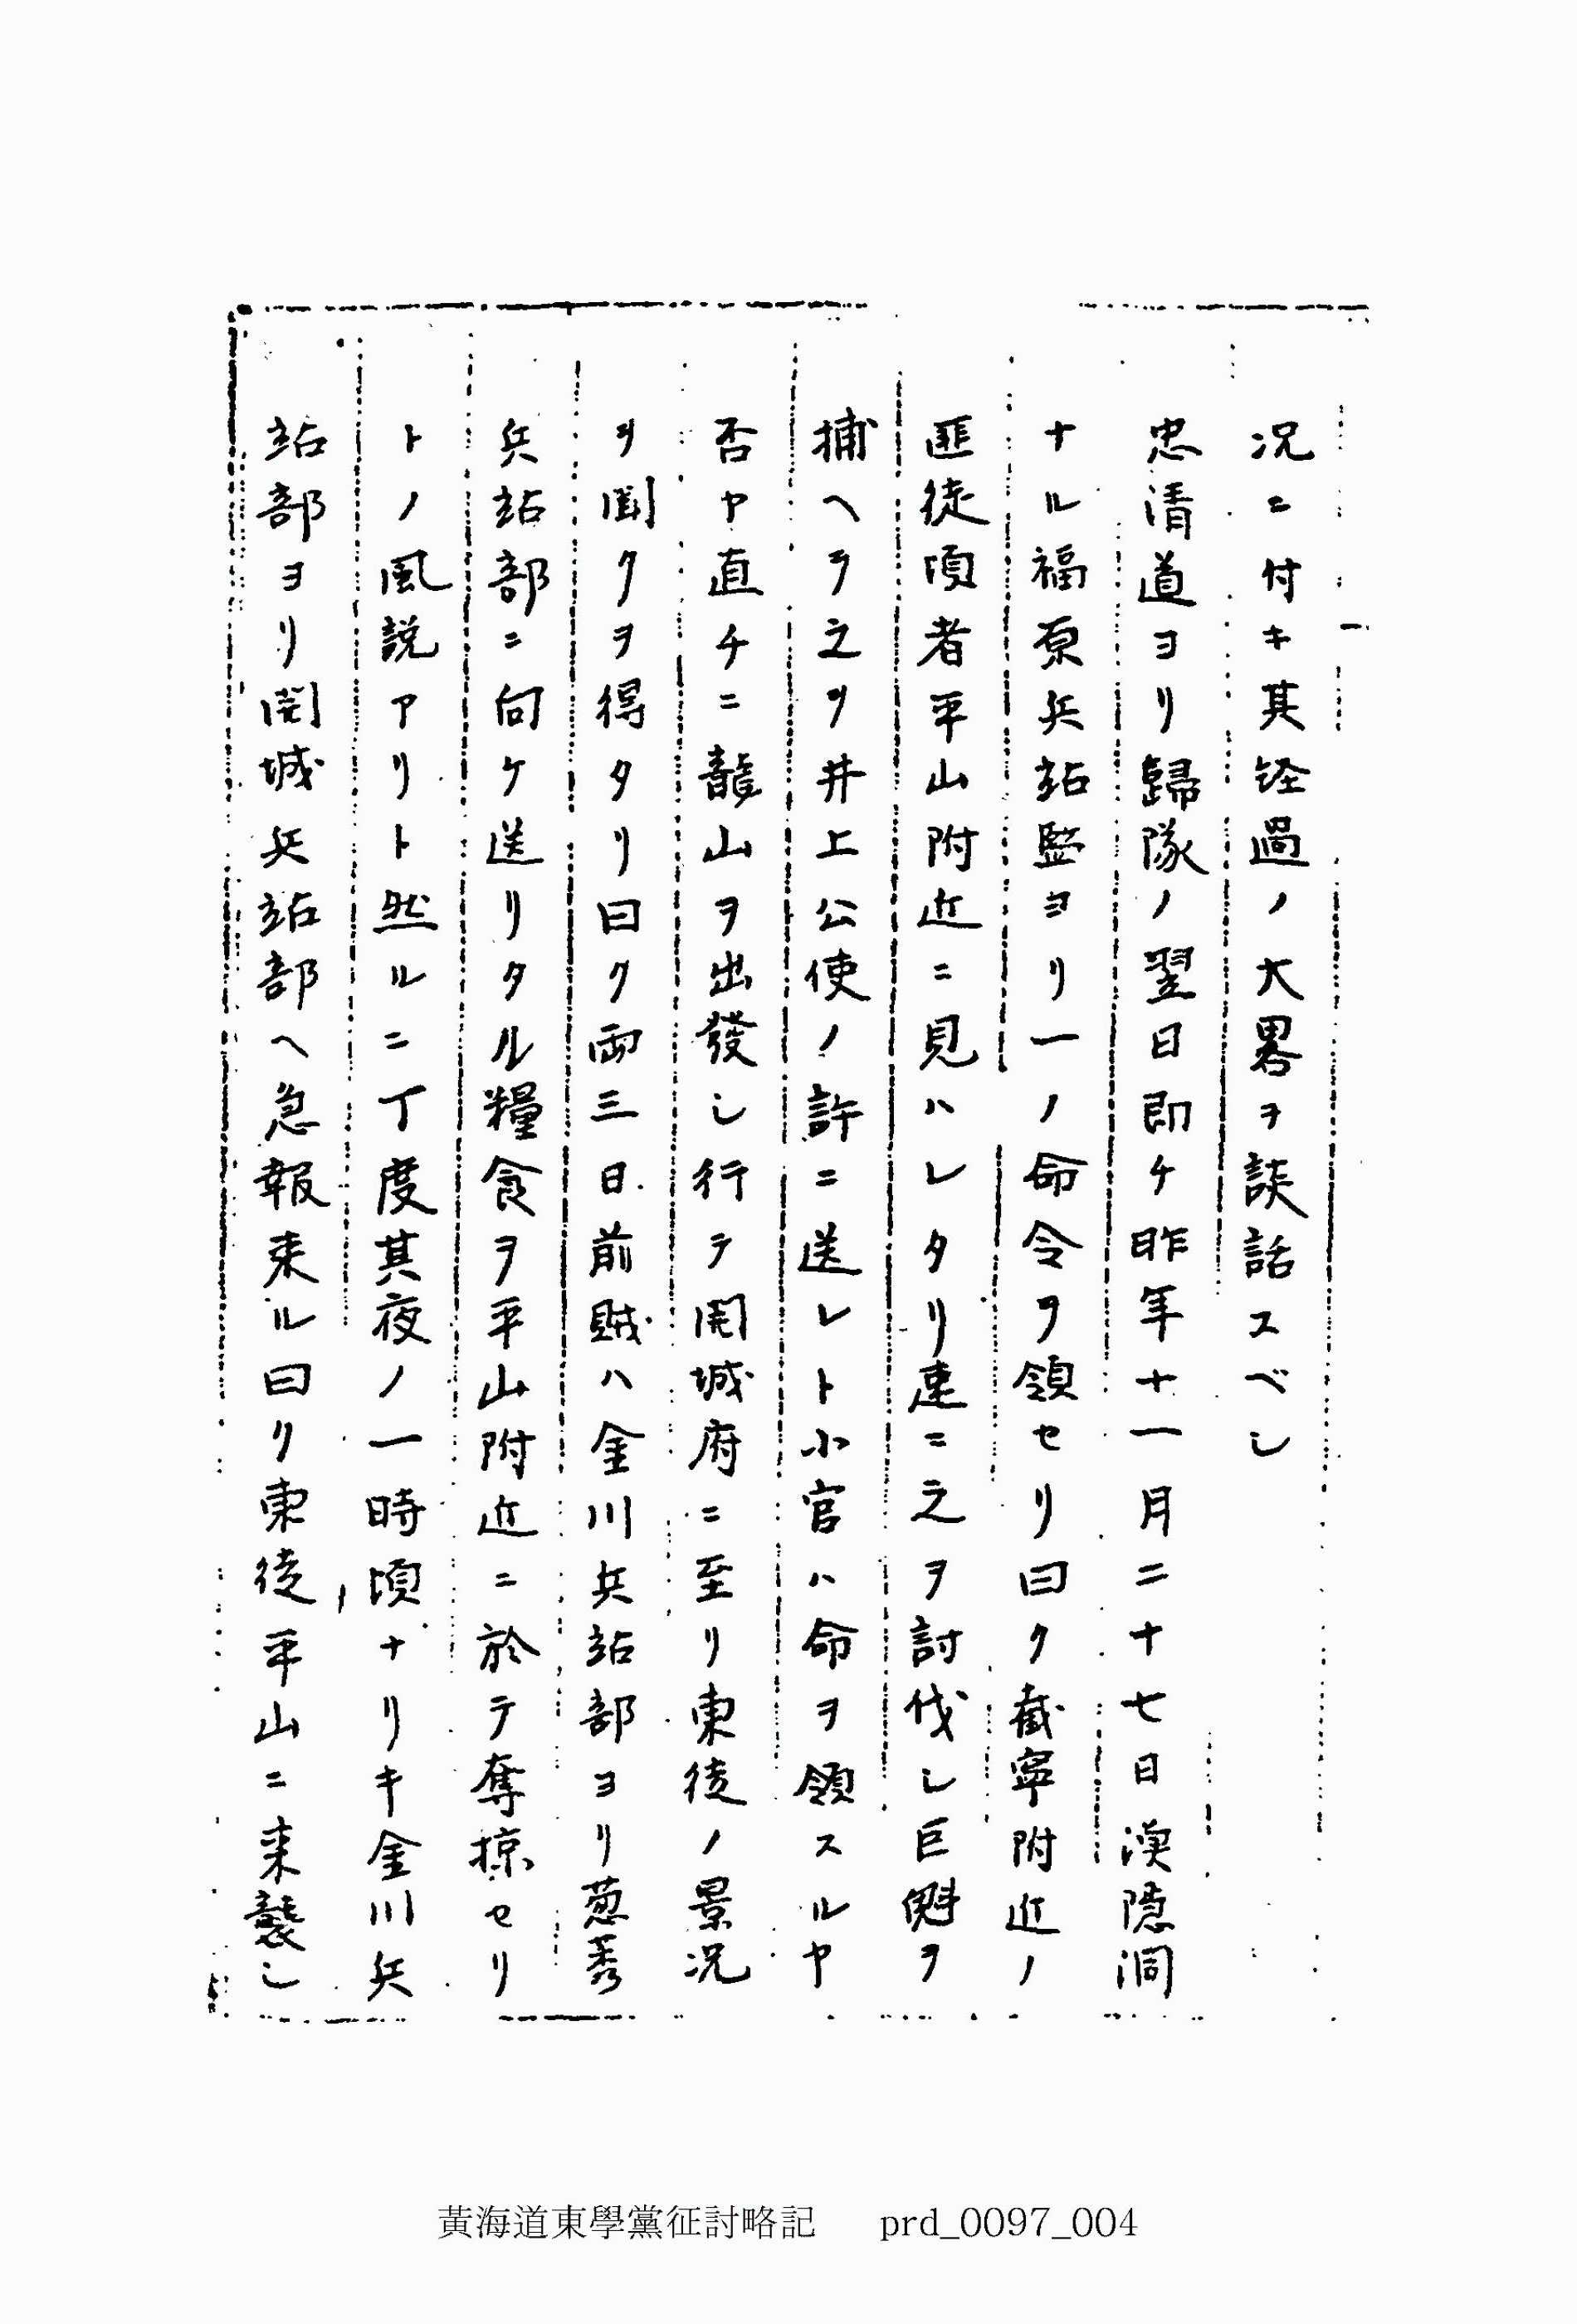 况ニ付キ其経過ノ大畧ヲ談話スベシ
忠清道ヨリ歸隊ノ翌日即チ昨年十一月二十七日漢隠洞
ナル福原兵站監ヨリ一ノ命令ヲ領セリ曰ク載寧附近ノ
匪徒頃者平山附近ニ見ハレタリ速ニ之ヲ討伐シ巨魁ヲ
捕ヘテ之ヲ井上公使ノ許ニ送レト小官ハ命ヲ領スルヤ
否ヤ直チニ龍山ヲ出發シ行テ開城府ニ至リ東徒ノ景况
ヲ聞クヲ得タリ曰ク両三日前賊ハ金川兵站部ヨリ葱秀
兵站部ニ向ケ送リタル糧食ヲ平山附近ニ於テ奪掠セリ
トノ風説アリト然ルニ丁度其夜ノ一時頃ナリキ金川兵
站部ヨリ開城兵站部ヘ急報来ル曰ク東徒平山ニ来襲シ
黃海道東學黨征討略記 prd_0097_004